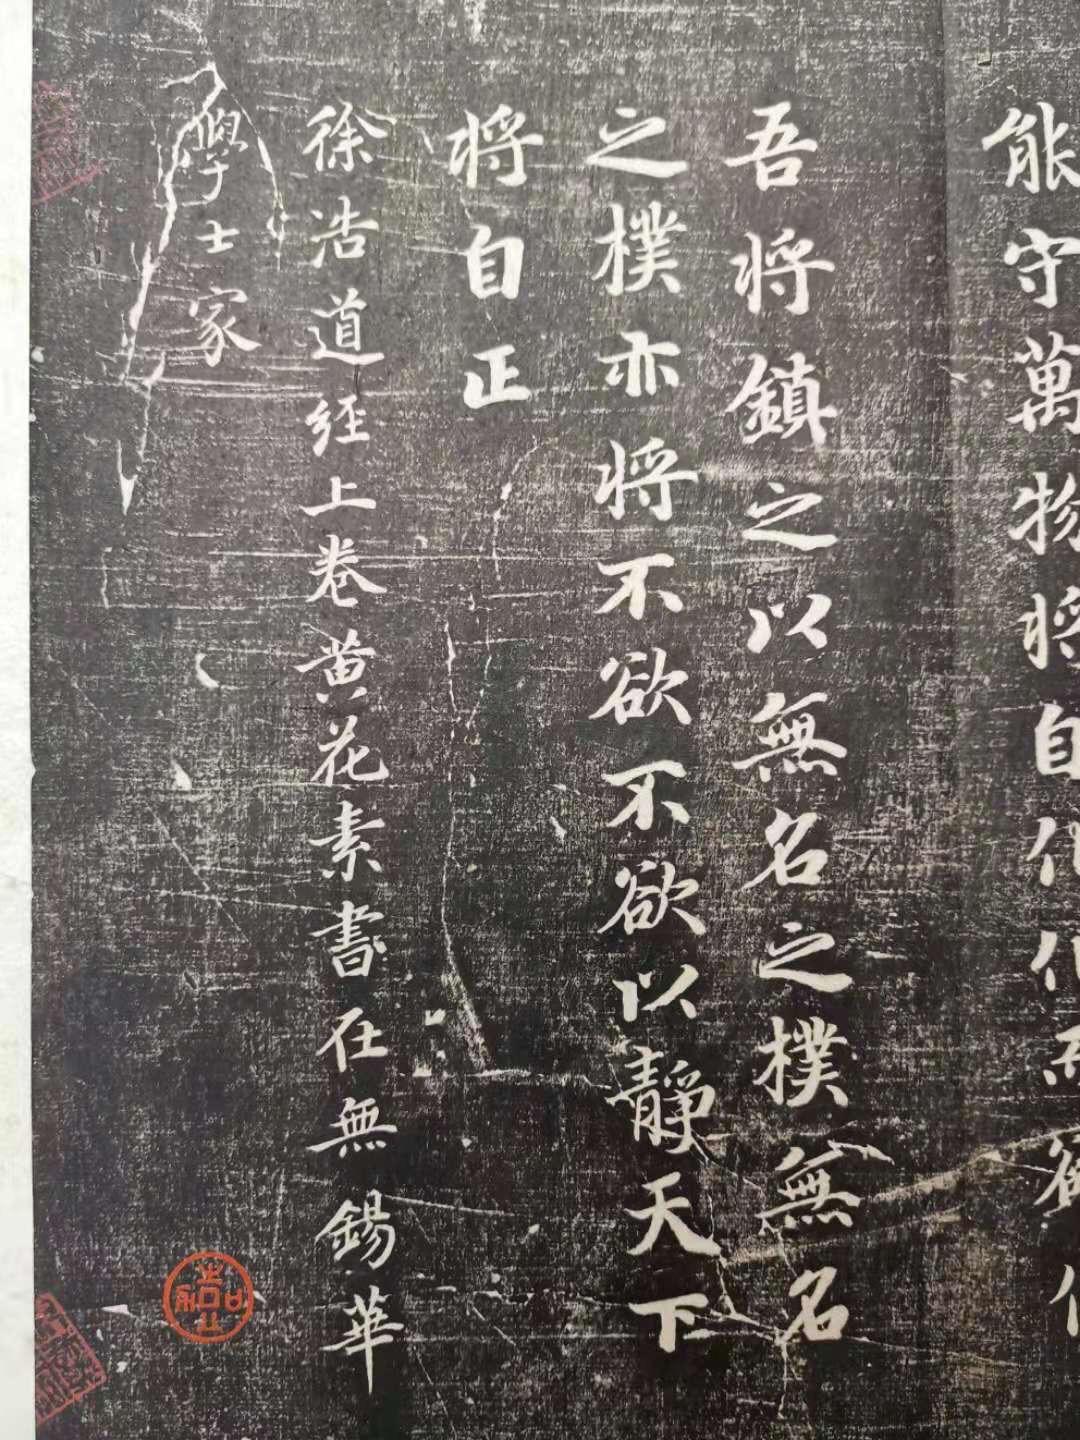 能守萬物將自化化而欲作
吾將鎮之以無名之樸無名
之樸亦將不欲不欲以靜天下
將自正
徐浩道经上卷黄花素書在無錫華
學士家